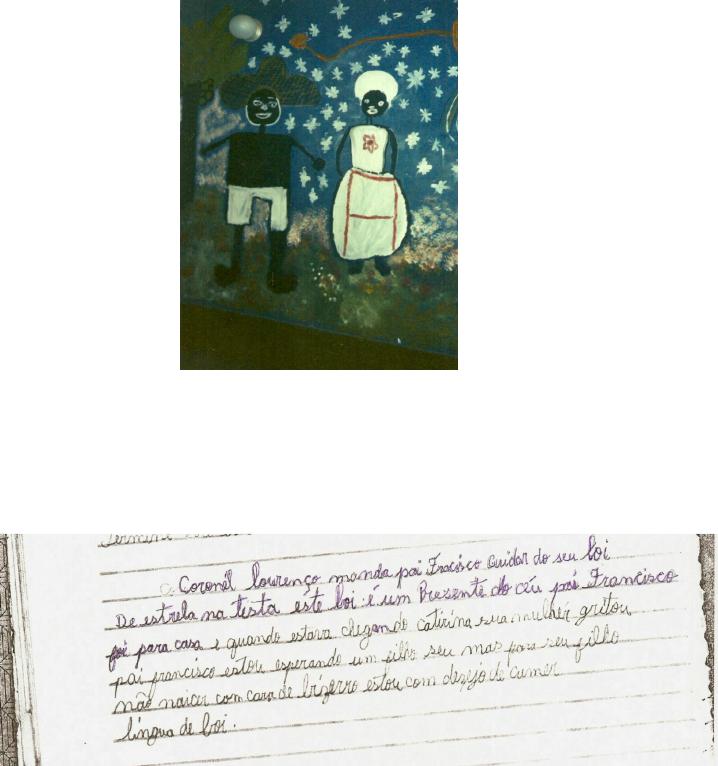 Coronél lourenço manda pai Fracisco Cuidar do seu boi
De estrela na testa este boi é um Presente do céu pai Francisco
foi para casa e quando estava chegando catirina sua mulher gritou
pai francisco estou esperando um filho seu mas para seu filho
não naicer com cara de bizerro estou com desejo de cumer
língua de boi.